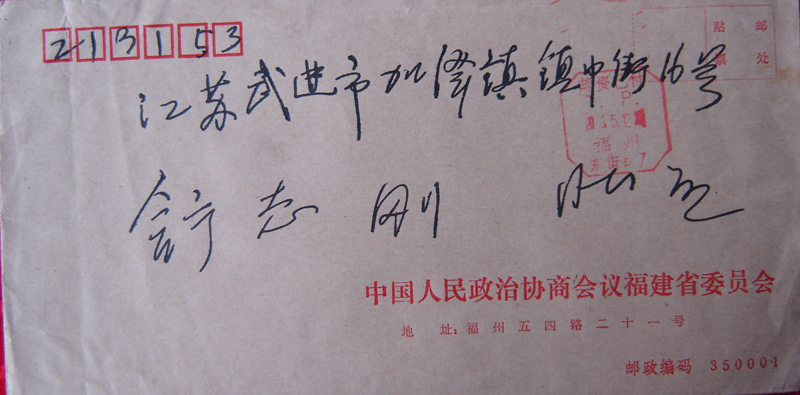 213153
贴 邮
票 处
江苏武进市加泽镇镇中街16号
邮资已付
福州
东街口 7
舒志刚
中国人民政治协商会议福建省委员会
地 址：福州五四路二十一号
邮政编码 350001